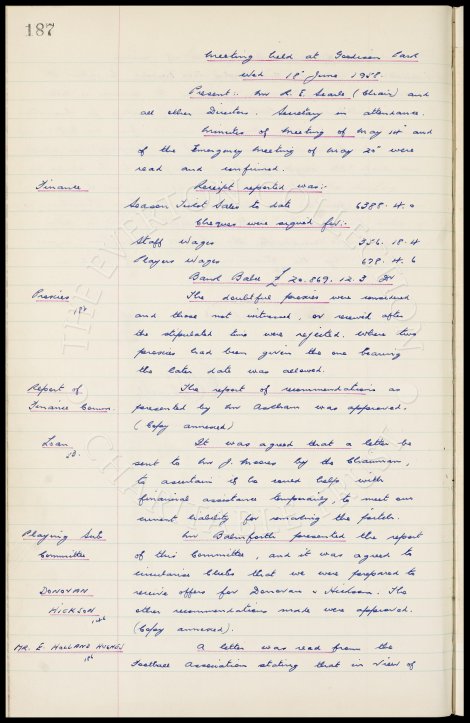 187
Meeting held at Goodison Park
Wed 18th June 1958.
Present:- Mr R. E. Searle (Chair) and
all other Directors. Secretary in attendance.
Minutes of Meeting of May 14th and
of the Emergency Meeting of May 20th were
read and confirmed.
Finance
Receipt reported was:-
Season Ticket Sales to date 6388. 4. 0
Cheques were signed for:-
Staff Wages 356. 18. 4
Players Wages 678. 4. 6
Bank Balce £ 20.869. 12. 3 Cr
Proxies
The doubtful proxies were considered
and those not witnessed, or received after
the stipulated time were rejected. Where two
proxies had been given the one bearing
the later date was allowed.
Report of
Finance Comm.
The report of recommendations as
presented by Mr Askham was approved.
(Copy annexed)
Loan
It was agreed that a letter be
sent to Mr J. Moores by the Chairman,
to ascertain if he could help with
financial assistance temporarily, to meet our
current liability for the pitch.
Playing Sub
Committee
Mr Balmforth presented the report
of this Committee, and it was agreed to
circularise Clubs that we were prepared to
DONOVAN
receive offers for Donovan & Hickson. The
HICKSON
other recommendations made were approved.
(Copy annexed).
MR. E HOLLAND HUGHES
A letter was read from the
Football Association stating that in view of